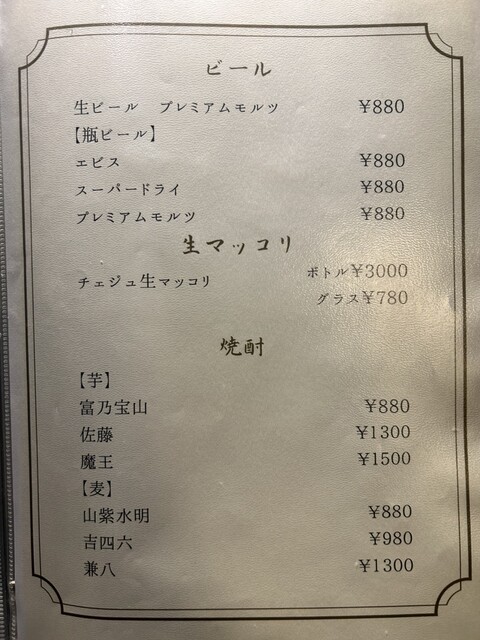 ビール
生ビール プレミアムモルツ ¥880
【瓶ビール】
エビス ¥880
スーパードライ ¥880
プレミアムモルツ ¥880
生マッコリ
チェジュ生マッコリ ボトル¥3000
グラス¥780
焼酎
【芋】
富乃宝山 ¥880
佐藤 ¥1300
魔王 ¥1500
【麦】
山紫水明 ¥880
吉四六 ¥980
兼八 ¥1300